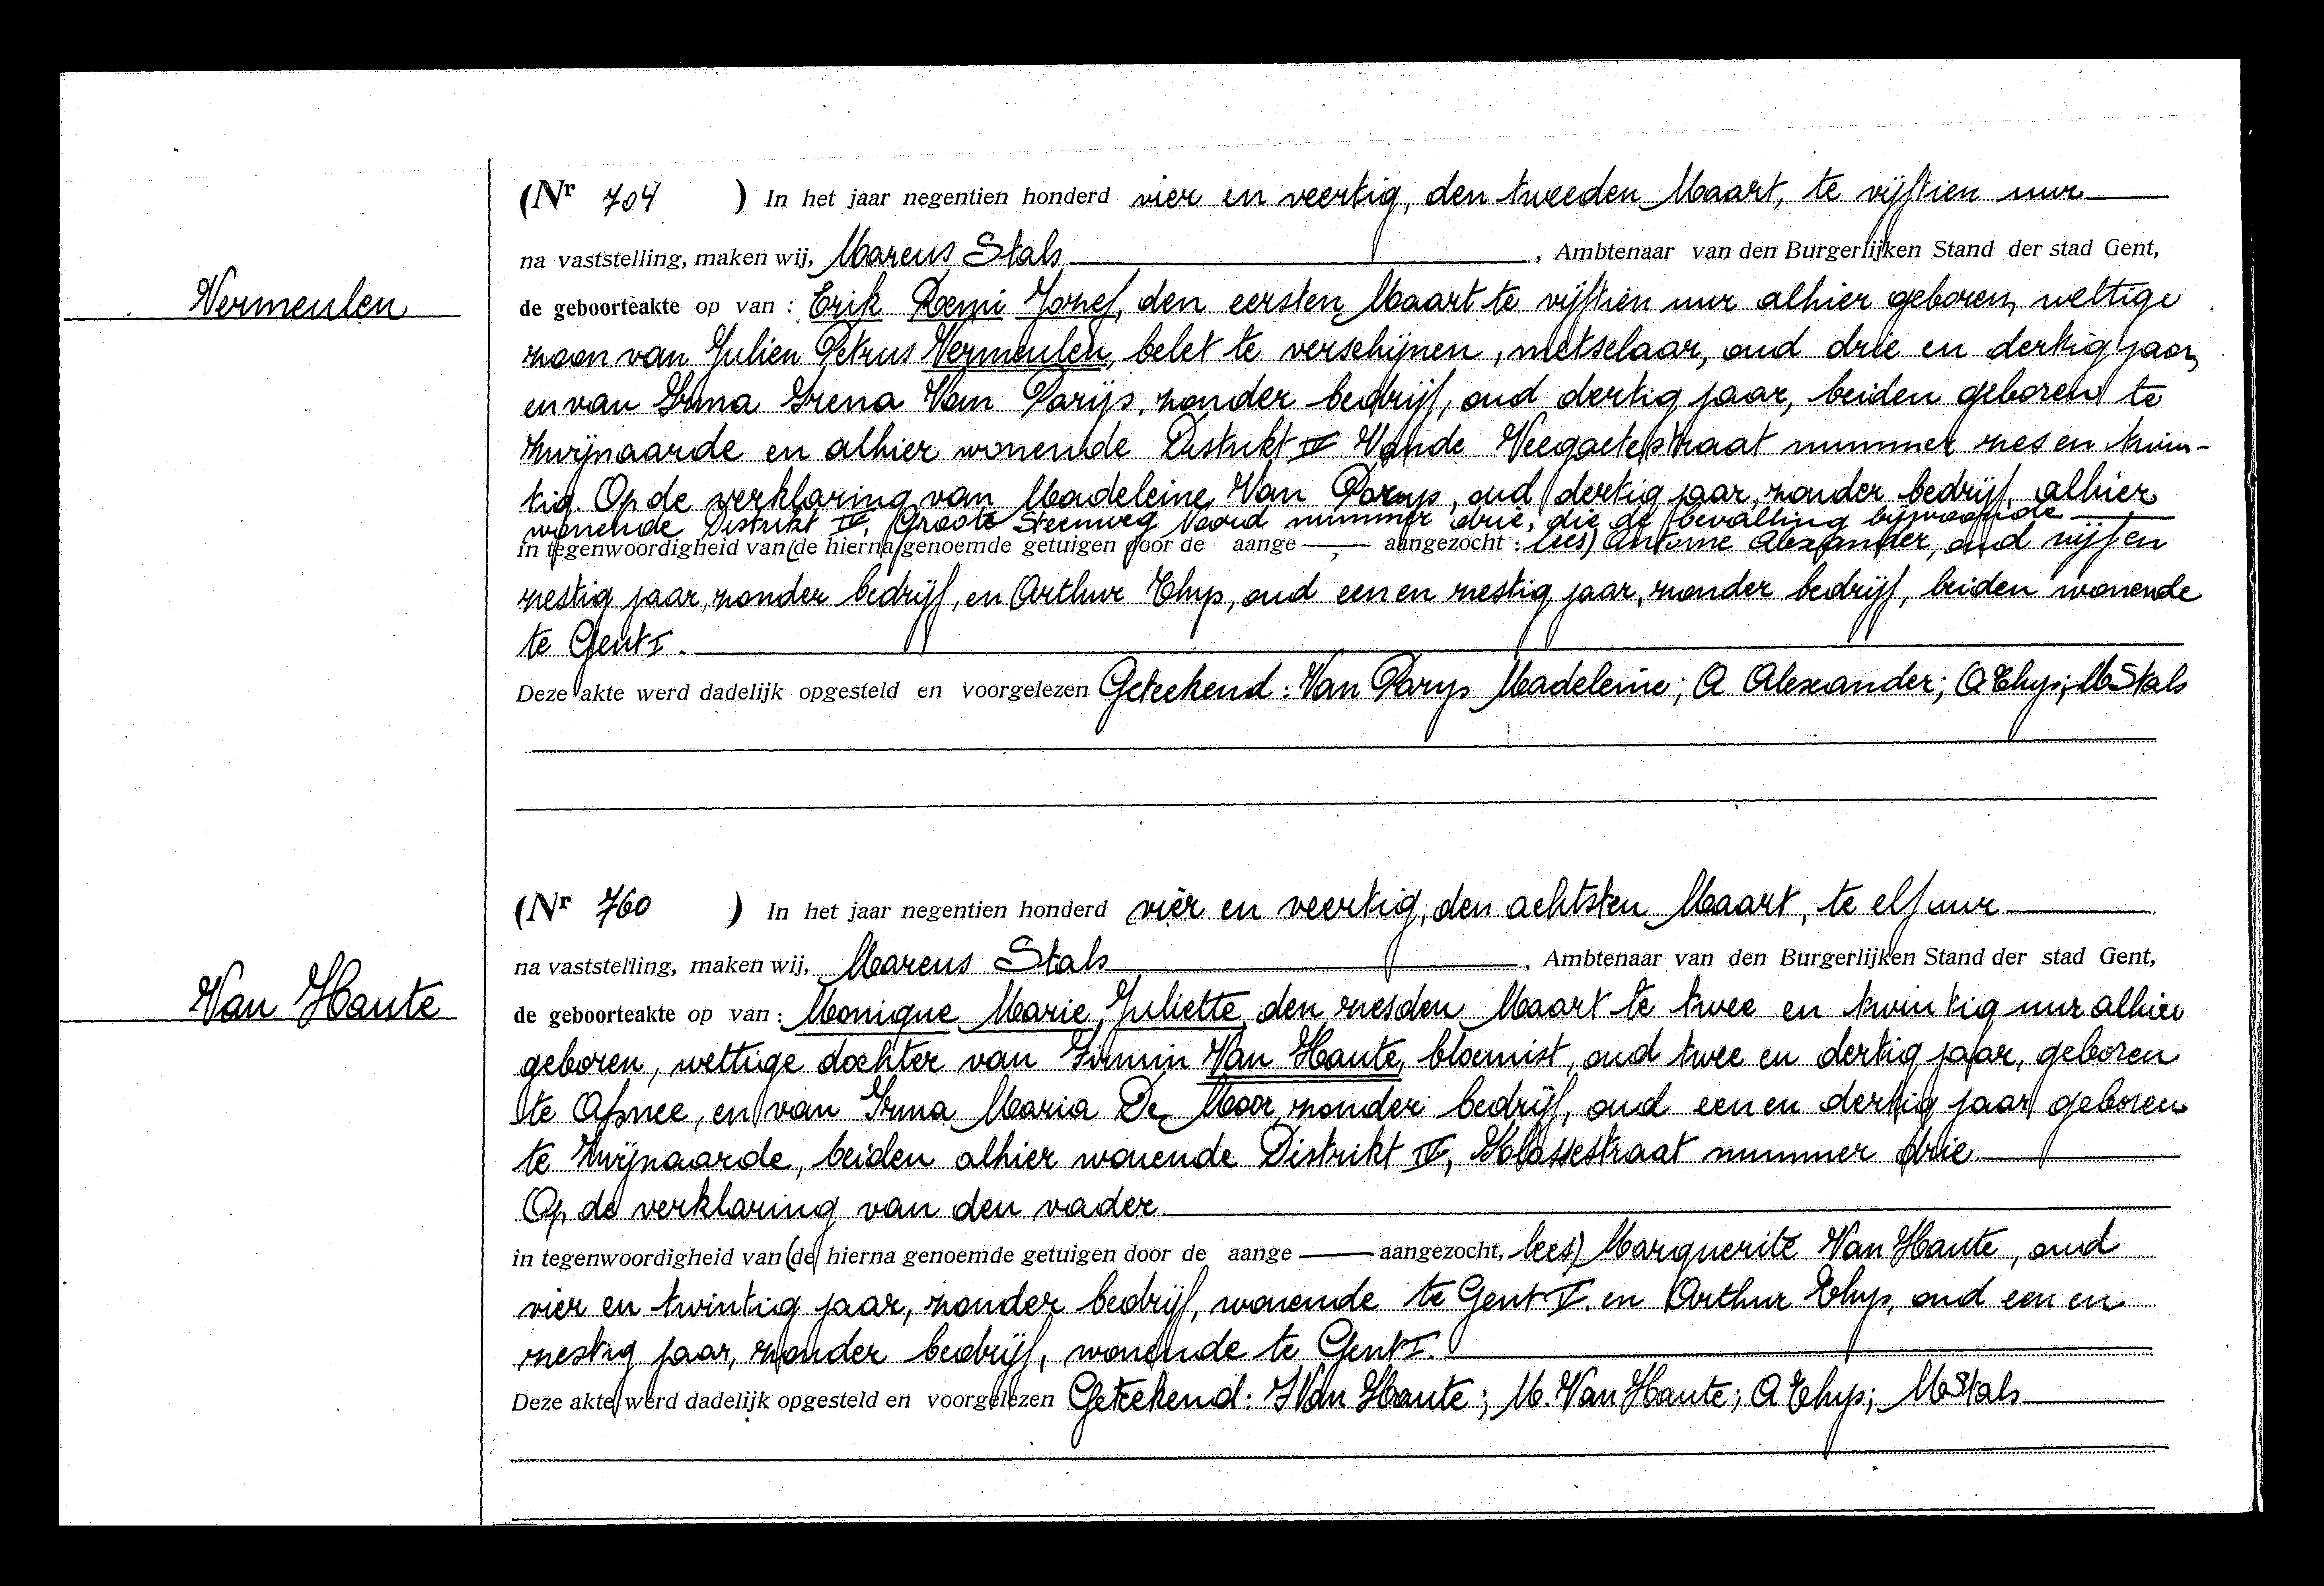 (Nr 704 ) In het jaar negentien honderd vier en veertig, den tweeden Maart, te vijftien uur
na vaststelling, maken wij, Marcus Stals, Ambtenaar van den Burgerlijken Stand der stad Gent,
Vermeulen
de geboorteakte op van : Erik Remi Jozef, den eersten Maart te vijftien uur alhier geboren, wettige
zoon van Julien Petrus Vermeulen, belet te verschijnen, metselaar, oud drie en dertig jaar,
en van Irma Irena Van Parijs, zonder bedrijf, oud dertig jaar, beiden geboren te
Zwijnaarde en alhier wonende Distrikt IV Van de Veegaetestraat nummer zes en twin-
tig. Op de verklaring van Madeleine Van Parys, oud dertig jaar, zonder bedrijf, alhier
wonende Distrikt IV, Groote Steenweg Noord nummer drie, die de bevalling bijwoonde
in tegenwoordigheid van (de hierna genoemde getuigen door de aange — aangezocht : lees) Antoine Alexander, oud vijf en
zestig jaar, zonder bedrijf, en Arthur Thys, oud een en zestig jaar, zonder bedrijf, beiden wonende
te Gent I.
Deze akte werd dadelijk opgesteld en voorgelezen Geteekend : Van Parys Madeleine; A Alexander; A Thys; M Stals
(Nr 760 ) In het jaar negentien honderd vier en veertig, den achtsten Maart, te elf uur
na vaststelling, maken wij, Marcus Stals, Ambtenaar van den Burgerlijken Stand der stad Gent,
Van Haute
de geboorteakte op van : Monique Marie Juliette, den zesden Maart te twee en twintig uur alhier
geboren, wettige dochter van Firmin Van Haute, bloemist, oud twee en dertig jaar, geboren
te Afsnee, en van Irma Maria De Moor, zonder bedrijf, oud een en dertig jaar, geboren
te Zwijnaarde, beiden alhier wonende Distrikt IV, Klossestraat nummer drie
Op de verklaring van den vader
in tegenwoordigheid van (de hierna genoemde getuigen door de aange — aangezocht, lees) Marguerite Van Haute, oud
vier en twintig jaar, zonder bedrijf, wonende te Gent V. en Arthur Thys, oud een en
zestig jaar, zonder bedrijf, wonende te Gent I.
Deze akte werd dadelijk opgesteld en voorgelezen Geteekend : F Van Haute; M. Van Haute; A Thys; M Stals